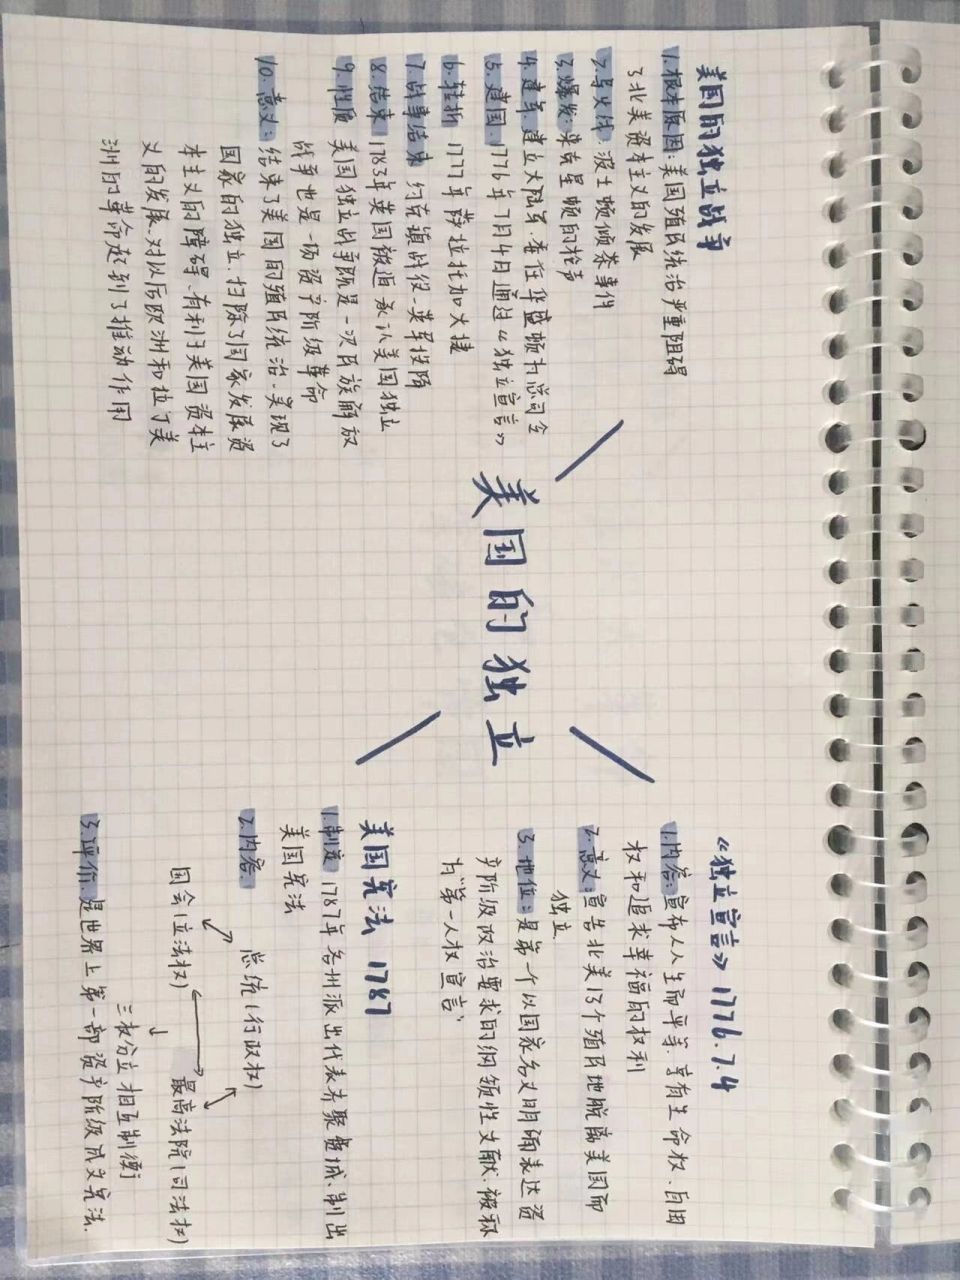 美国的独立战争
1.根本原因:美国殖民统治严重阻碍
了北美资本主义的发展
2.导火线:波士顿倾茶事件
3.爆发:莱克星顿的枪声
4.建军 建立大陆军·委任华盛顿为总司令
5.建国 1776年7月4日通过《独立宣言》
6.转折 1777年萨拉托加大捷
7.战事结束 约克镇战役-英军投降
8.结束 1783年英国被迫承认美国独立
9.性质 美国独立战争既是一次民族解放
战争也是一场资产阶级革命
10.意义:结束了美国的殖民统治·实现了
国家的独立.扫除了国家发展资
本主义的障碍.有利于美国资本主
义的发展.对以后欧洲和拉丁美
洲的革命起到了推动作用
美国的独立
《独立宣言》1776.7.4
1.内容:宣布人人生而平等.享有生命权、自由
权和追求幸福的权利
2.意义:宣告北美13个殖民地脱离美国而
独立
3.地位:是第一个以国家名义明确表达资
产阶级政治要求的纲领性文献.被称
为“第一人权宣言”
美国宪法 1787
1.制定 1787年各州派出代表齐聚费城.制出
美国宪法
2.内容:
总统(行政权)
国会(立法权) 最高法院(司法权)
三权分立 相互制衡
3.评价.是世界上第一部资产阶级成文宪法.